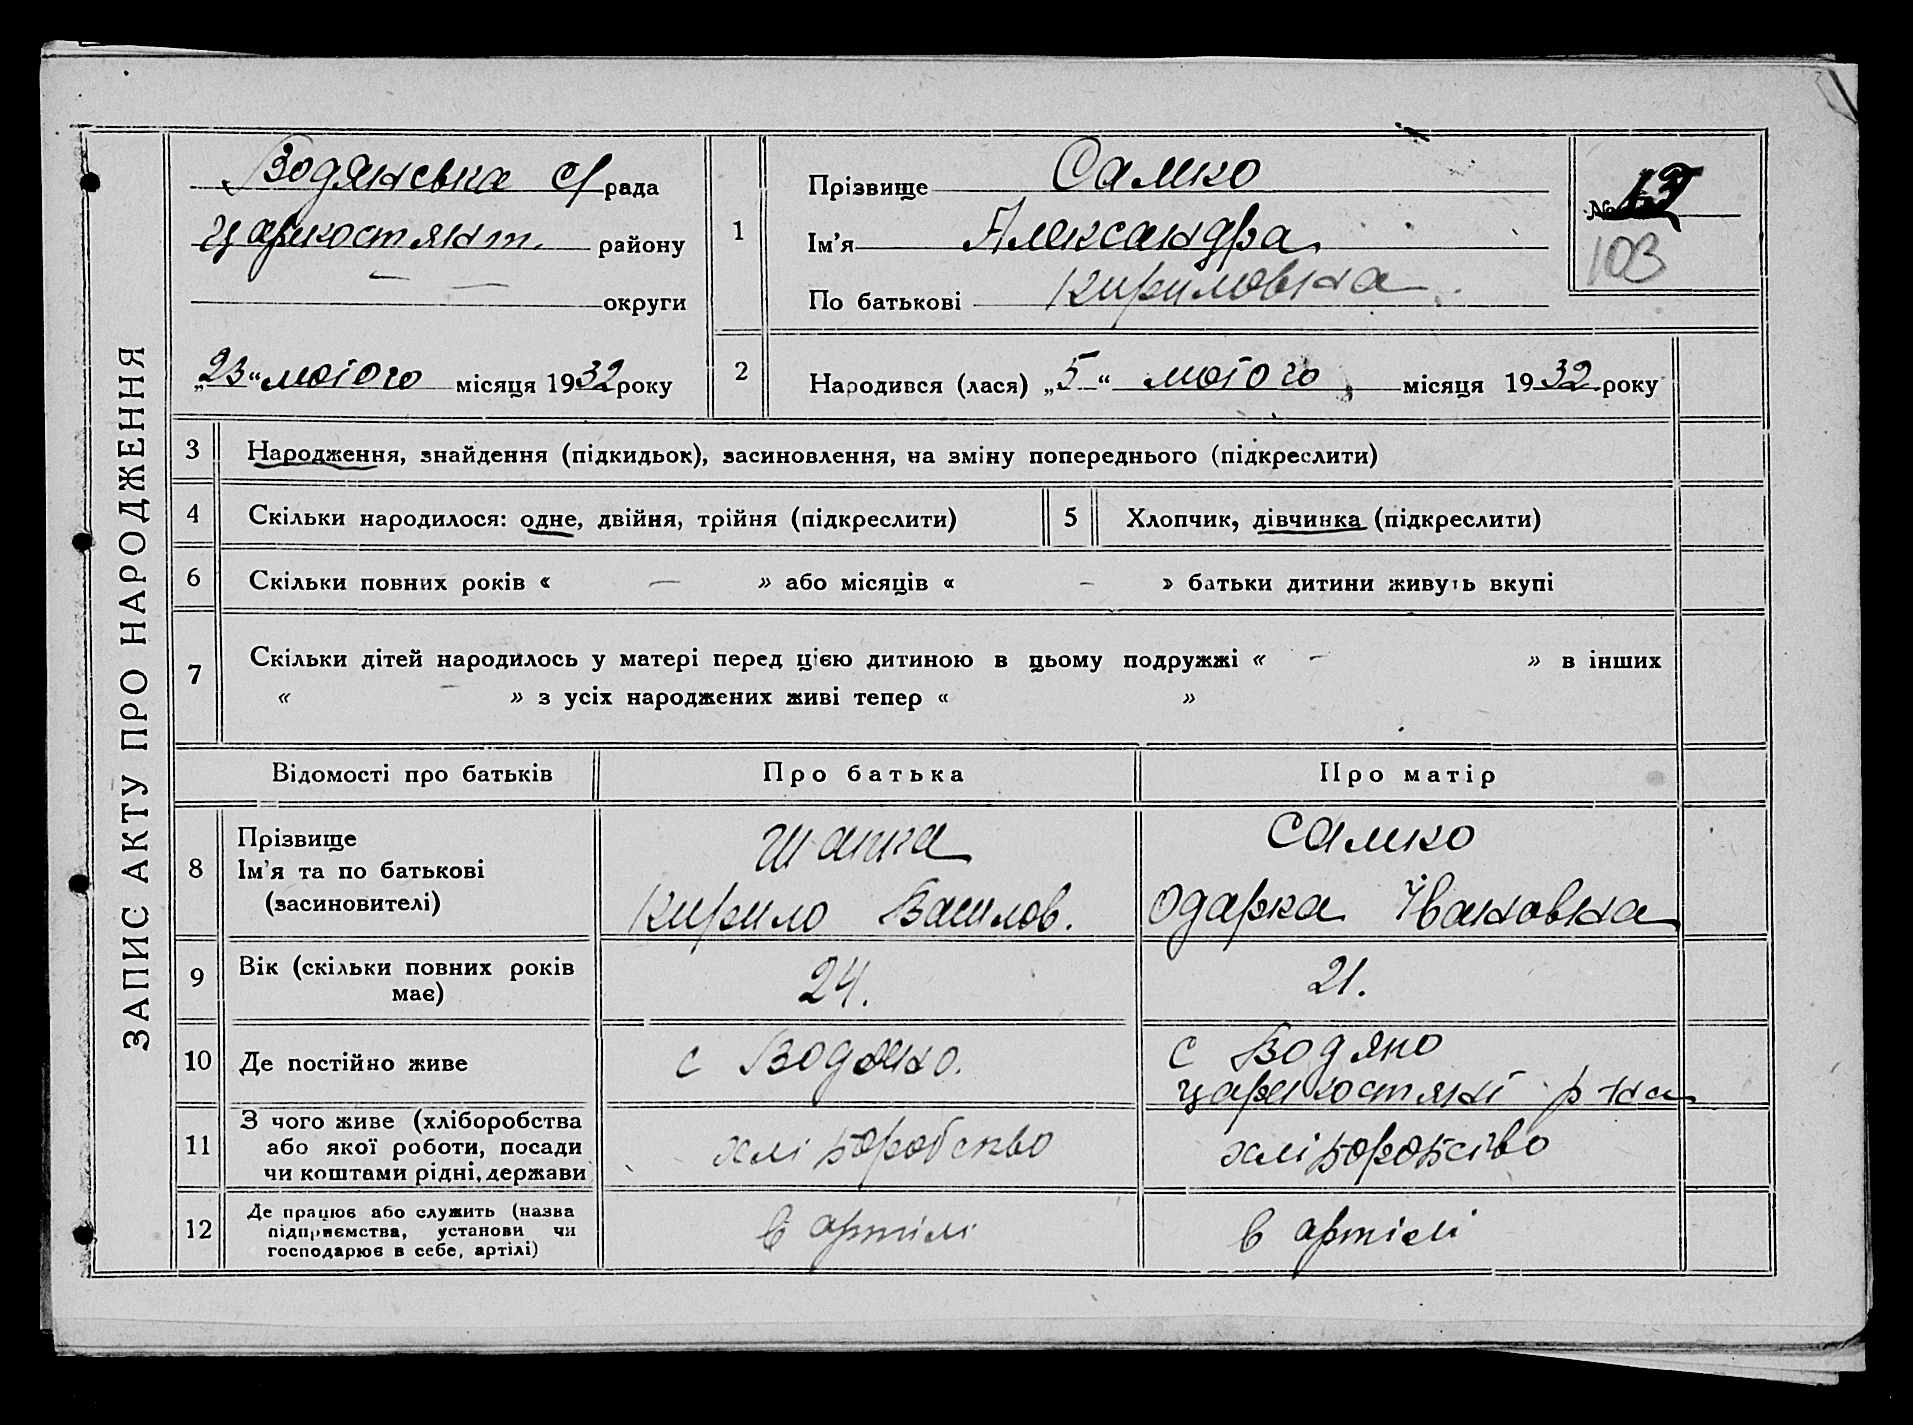 ЗАПИС АКТУ ПРО НАРОДЖЕННЯ
Водянська с/рада
Царикостянт. району
— — округи
„23“ лютого місяця 1932 року
1
Прізвище Самко
Ім’я Александра
По батькові Кириловна
№
103
2
Народився (лася) „5“ лютого місяця 1932 року
3 Народження, знайдення (підкидьок), засиновлення, на зміну попереднього (підкреслити)
4 Скільки народилося: одне, двійня, трійня (підкреслити) 5 Хлопчик, дівчинка (підкреслити)
6 Скільки повних років « — » або місяців « – » батьки дитини живуть вкупі
7 Скільки дітей народилось у матері перед цією дитиною в цьому подружжі « – » в інших
« — » з усіх народжених живі тепер « »
Відомості про батьків Про батька Про матір
8 Прізвище
Ім’я та по батькові
(засиновителі)
Шапка
Кирило Василов.
Самко
Одарка Івановна
9 Вік (скільки повних років
має)
24.
21.
10 Де постійно живе
с Водяно.
с Водяно
Царикостянт р-на
11 З чого живе (хліборобства
або якої роботи, посади
чи коштами рідні, держави
хліборобство
хліборобство
12 Де працює або служить (назва
підприємства, установи чи
господарює в себе, артілі)
в артілі
в артілі